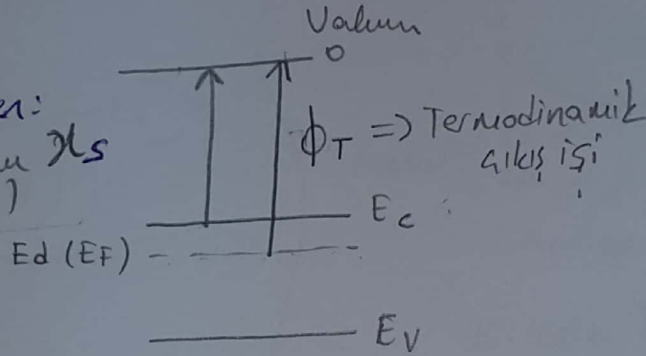 Vakum
0
χs
)
ϕT => Termodinamik
çıkış işi
Ec
Ed (EF)
Ev